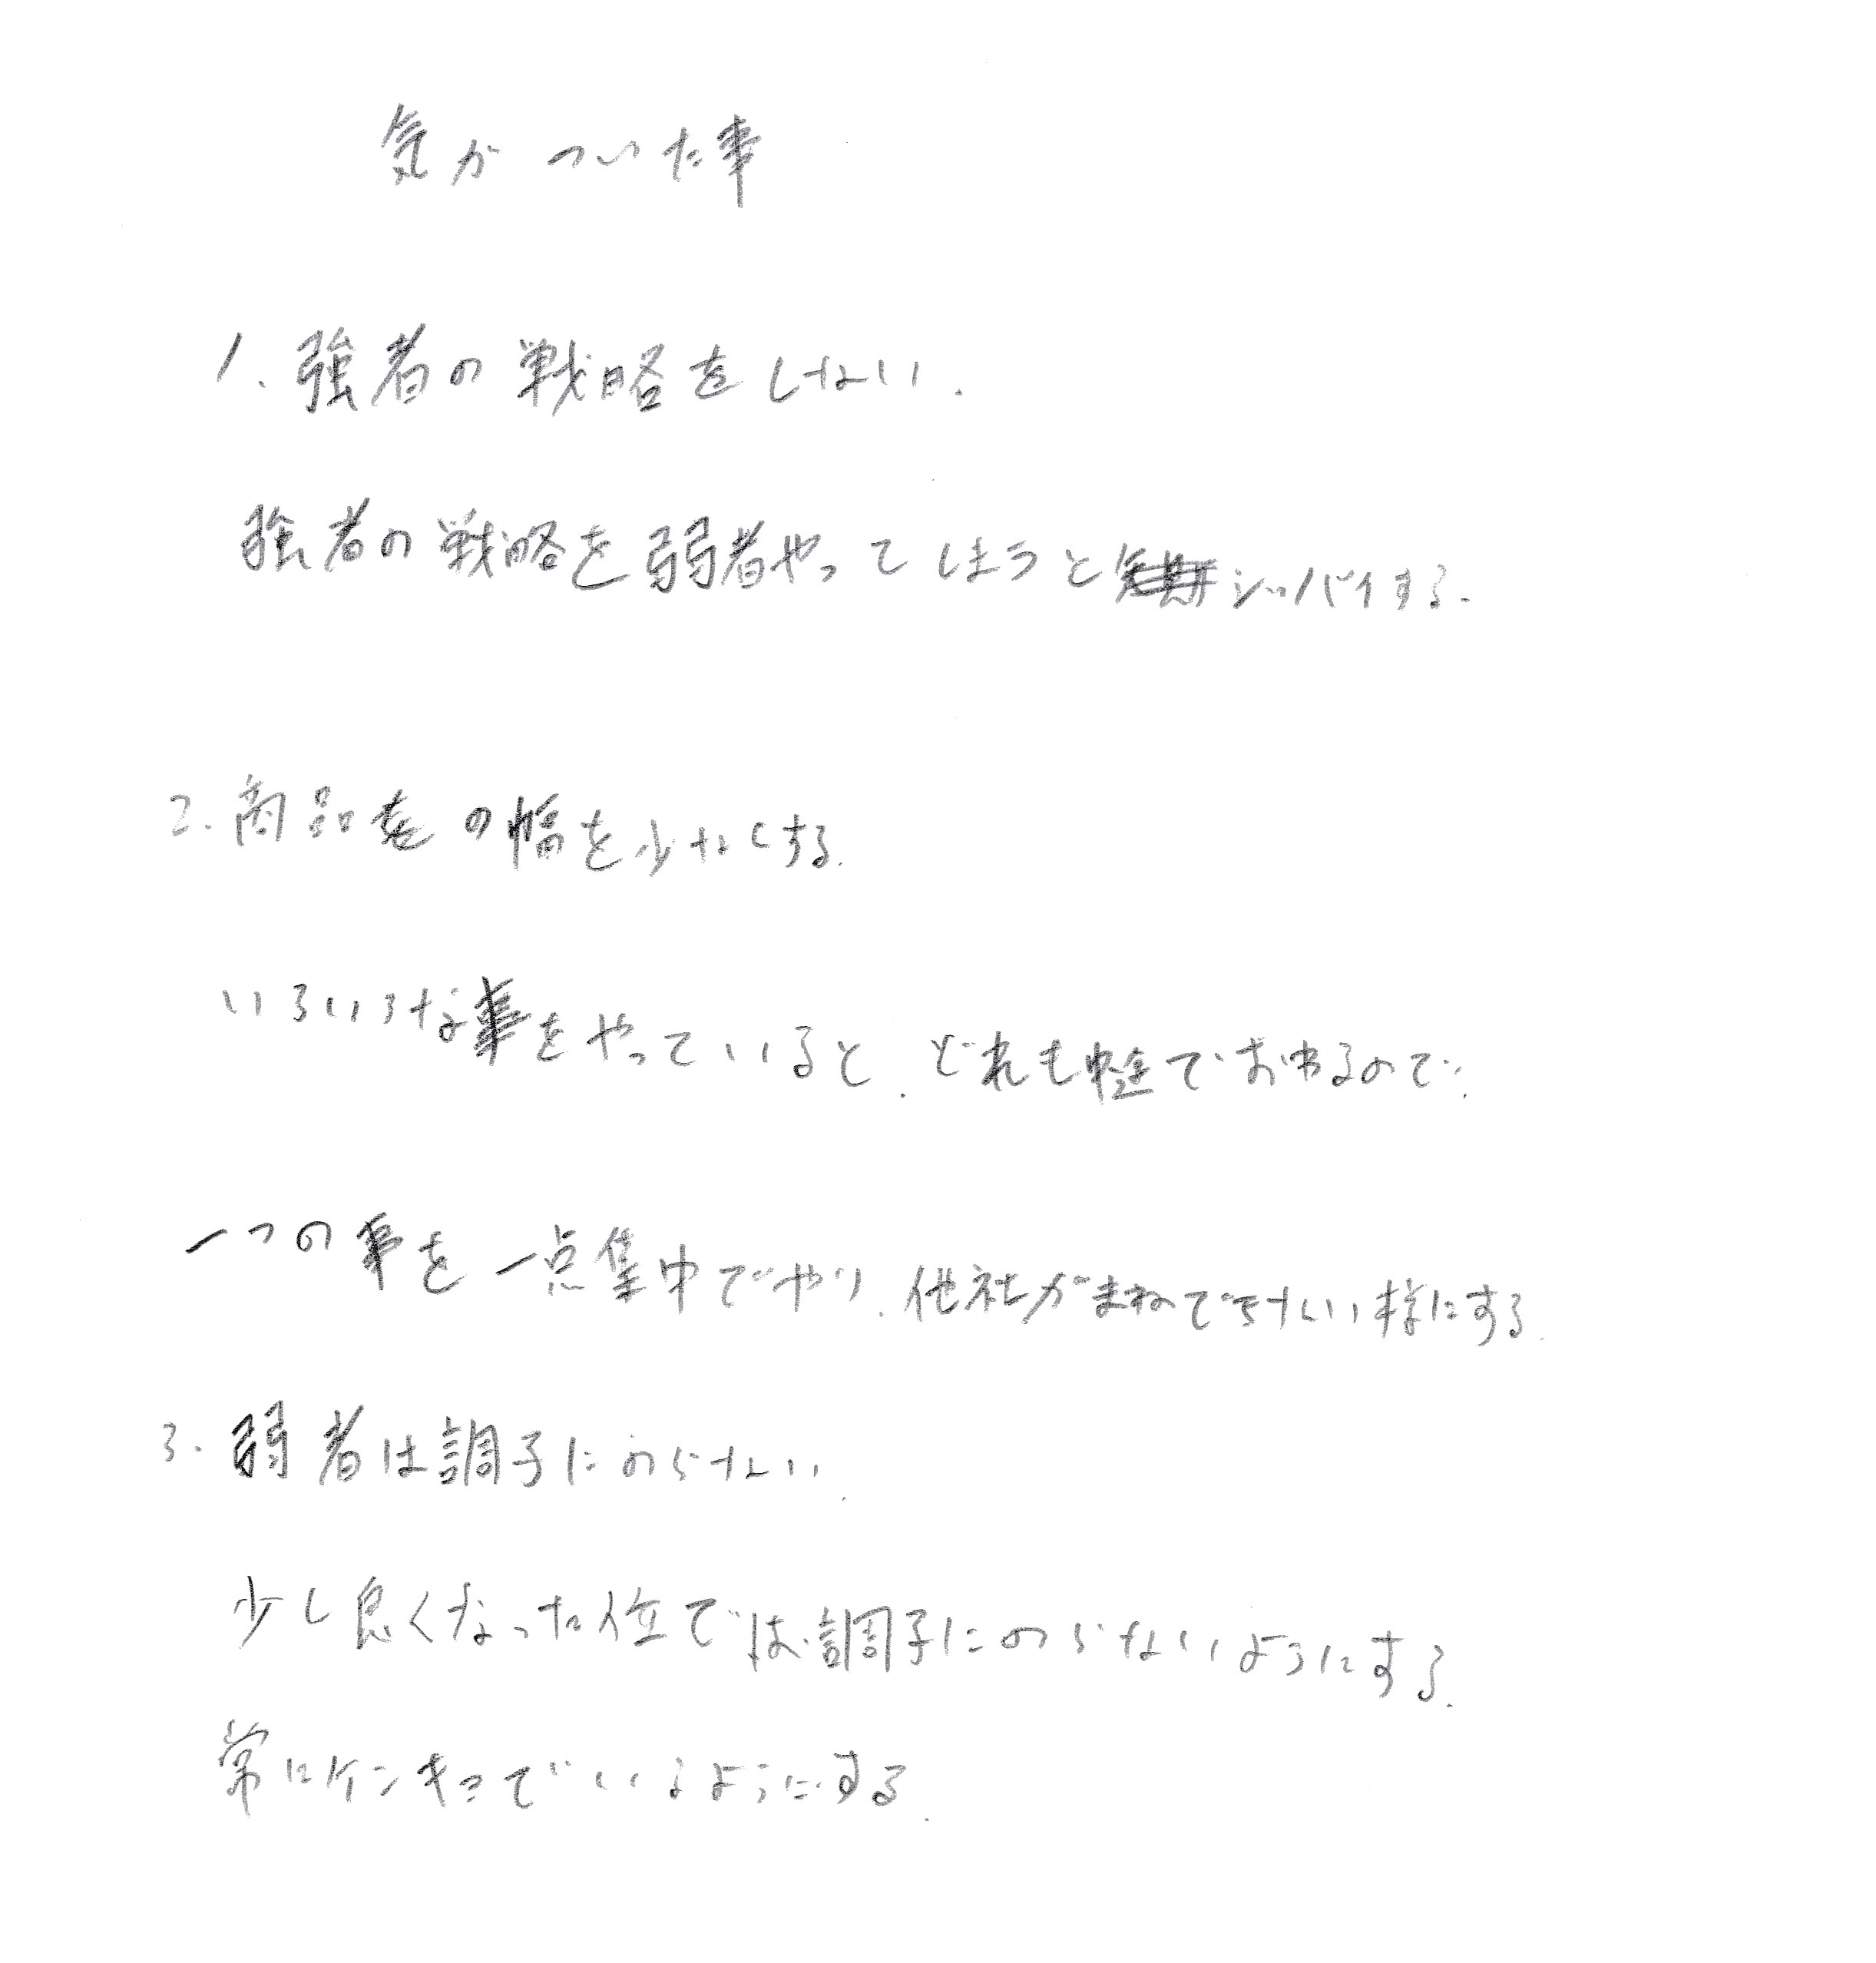 気がついた事
1. 強者の戦略をしない.
強者の戦略を弱者やってしまうとシッパイする.
2. 商品の幅を少なくする.
いろいろな事をやっていると. どれも中途でおわるので.
一つの事を一点集中でやり. 他社がまねできない様にする.
3. 弱者は調子にのらない.
少し良くなった位では調子にのらないようにする.
常にケンキョでいるようにする.